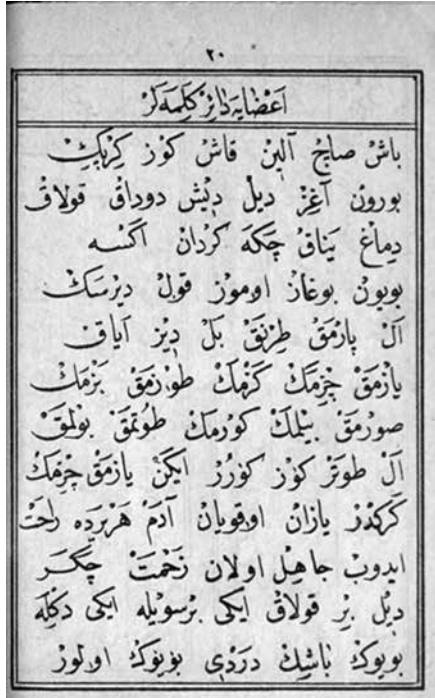 ٢٠
اَعْضَايَه دَائِرْ كَلِمَه لَرْ
باشْ صاچْ آلِينْ قاشْ كوزْ كِرپِكْ
بورونْ آغِزْ ديلْ دِيشْ دوداقْ قولاقْ
دِماغْ يَناقْ چَكَه كَردانْ اَكْسَه
بويونْ بوغازْ اوموزْ قولْ ديرْسَكْ
اَلْ پارْمَقْ طِرْنَقْ بَلْ دِيزْ آياقْ
يازْمَقْ چِزْمَكْ كَزْمَكْ طورْمَقْ بَزْمَكْ
صورْمَقْ بيلْمَكْ كورْمَكْ طُوتْمَقْ بولْمَقْ
اَلْ طوتَرْ كوزْ كورُرْ ايكَنْ يازْمَقْ چِزْمَكْ
كَرَكْدِرْ يازانْ اوقويانْ آدَمْ هَرْيَرْدَه راحَتْ
ايدوبْ جاهِلْ اولانْ زَحْمَتْ چَكَرْ
دِيلْ بِرْ قولاقْ ايكى بِرْسويله ايكى دِكْلَه
بويوكْ باشِكْ دَرْدِى بويوكْ اولورْ